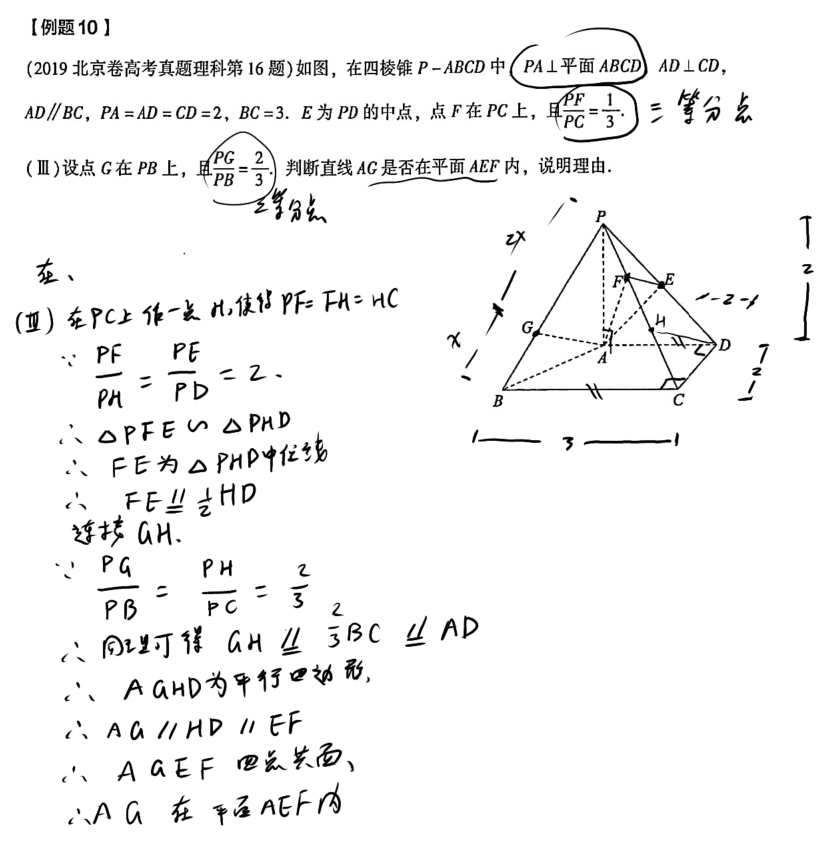 【例题10】
(2019北京卷高考真题理科第16题)如图，在四棱锥P-ABCD中，PA⊥平面ABCD，AD⊥CD，
AD∥BC，PA=AD=CD=2，BC=3．E为PD的中点，点F在PC上，且PF/PC=1/3． 三等分点
(Ⅲ)设点G在PB上，且PG/PB=2/3．判断直线AG是否在平面AEF内，说明理由．
三等分点
P
2x
2
在、
F E
-2-
(Ⅲ) 在PC上作一点H,使得PF=FH=HC
H
G
x
A
D
2
∵ PF/PH = PE/PD = 2.
B
C
∴ △PFE∽△PHD
3
∴ FE为△PHD中位线
∴ FE∥=1/2HD
连接GH.
∵ PG/PB = PH/PC = 2/3
∴ 同理可得 GH ∥= 2/3BC ∥= AD
∴ AGHD为平行四边形,
∴ AG∥HD∥EF
∴ AGEF四点共面、
∴AG在平面AEF内